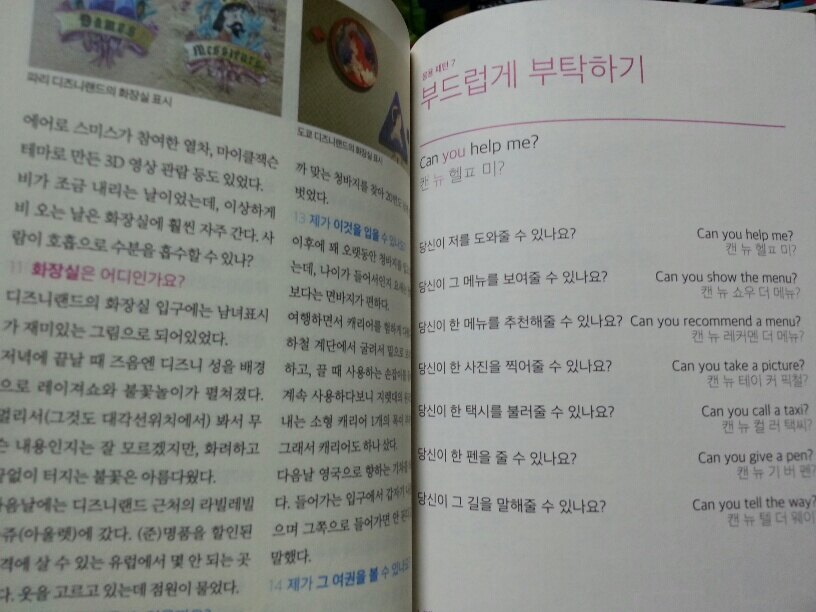 Dames
Messieurs
파리 디즈니랜드의 화장실 표시
에어로 스미스가 참여한 열차, 마이클잭슨
테마로 만든 3D 영상 관람 등도 있었다.
비가 조금 내리는 날이었는데, 이상하게
비 오는 날은 화장실에 훨씬 자주 간다. 사
람이 호흡으로 수분을 흡수할 수 있나?
11 화장실은 어디인가요?
디즈니랜드의 화장실 입구에는 남녀표시
가 재미있는 그림으로 되어있었다.
저녁에 끝날 때 즈음엔 디즈니 성을 배경
으로 레이져쇼와 불꽃놀이가 펼쳐졌다.
멀리서(그것도 대각선위치에서) 봐서 무
슨 내용인지는 잘 모르겠지만, 화려하고
끊임없이 터지는 불꽃은 아름다웠다.
다음날에는 디즈니랜드 근처의 라빌레빌
라쥬(아울렛)에 갔다. (준)명품을 할인된
가격에 살 수 있는 유럽에서 몇 안 되는 곳
이다. 옷을 고르고 있는데 점원이 물었다.
도쿄 디즈니랜드의 화장실 표시
까 맞는 청바지를 찾아 20번도
벗었다.
13 제가 이것을 입을 수 있나요?
이후에 꽤 오랫동안 청바지를
는데, 나이가 들어서인지 요새는
보다는 면바지가 편하다.
여행하면서 캐리어를 험하게
하철 계단에서 굴려서 밑으로
하고, 끌 때 사용하는 손잡이를
계속 사용하다보니 지렛대의
내는 소형 캐리어 1개의 목이
그래서 캐리어도 하나 샀다.
다음날 영국으로 향하는 기차를
다. 들어가는 입구에서 갑자기
으며 그쪽으로 들어가면 안
말했다.
14 제가 그 여권을 볼 수 있나요?
응용 패턴 7
부드럽게 부탁하기
Can you help me?
캔 뉴 헬ㅍ 미?
당신이 저를 도와줄 수 있나요? Can you help me?
캔 뉴 헬ㅍ 미?
당신이 그 메뉴를 보여줄 수 있나요? Can you show the menu?
캔 뉴 쇼우 더 메뉴?
당신이 한 메뉴를 추천해줄 수 있나요? Can you recommend a menu?
캔 뉴 레커멘 더 메뉴?
당신이 한 사진을 찍어줄 수 있나요? Can you take a picture?
캔 뉴 테이 커 픽철?
당신이 한 택시를 불러줄 수 있나요? Can you call a taxi?
캔 뉴 컬 러 택씨?
당신이 한 펜을 줄 수 있나요? Can you give a pen?
캔 뉴 기 버 펜?
당신이 그 길을 말해줄 수 있나요? Can you tell the way?
캔 뉴 텔 더 웨이